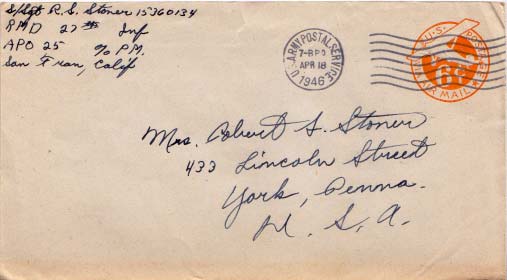 S/Sgt R. S. Stoner 15360134
RMD 27th Inf
APO 25 % P.M.
San Fran, Calif
U.S. ARMY POSTAL SERVICE
APR 18
1946
U.S. POSTAGE
6¢
VIA AIR MAIL
Mrs. Robert S. Stoner
433 Lincoln Street
York, Penna.
U. S. A.